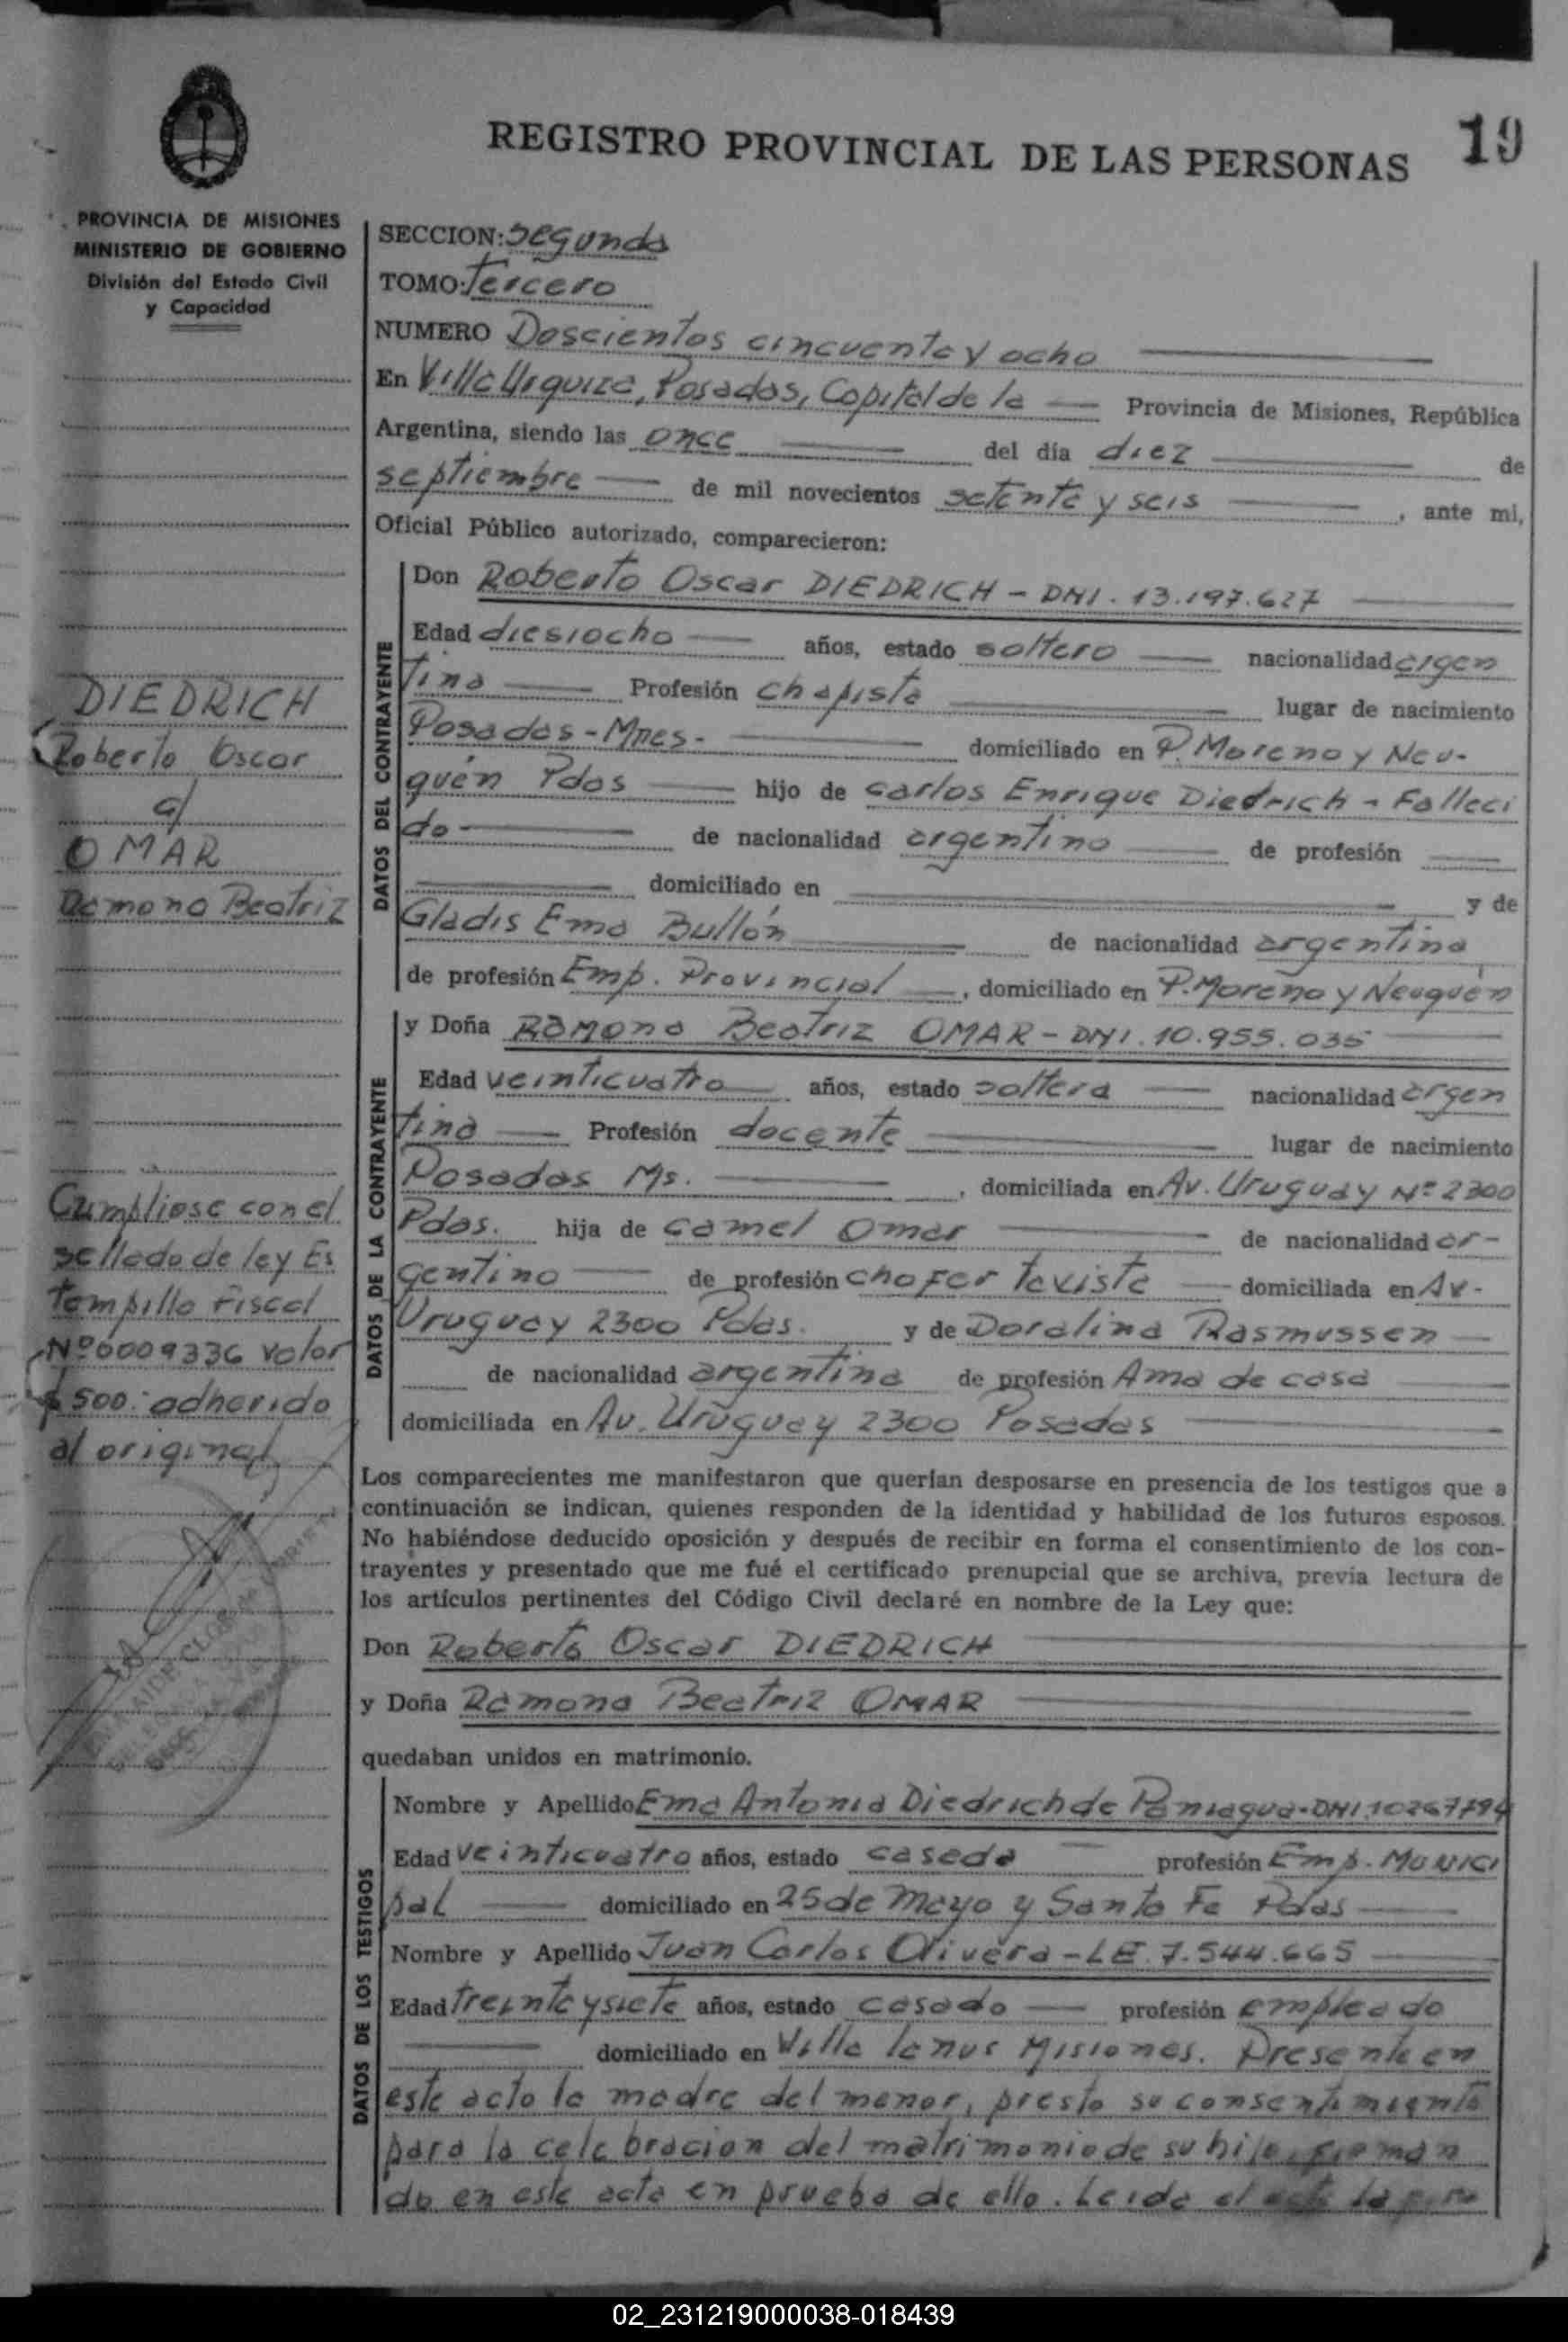 REGISTRO PROVINCIAL DE LAS PERSONAS 19
PROVINCIA DE MISIONES
MINISTERIO DE GOBIERNO
División del Estado Civil
y Capacidad
SECCION: Segunda
TOMO: Tercero
NUMERO Doscientos cincuenta y ocho
En Villa Urquiza, Posadas, Capital de la Provincia de Misiones, República
Argentina, siendo las once del día diez de
septiembre de mil novecientos setenta y seis, ante mi,
Oficial Público autorizado, comparecieron:
DATOS DEL CONTRAYENTE
Don Roberto Oscar DIEDRICH - DNI. 13.197.627
Edad diesiocho años, estado soltero nacionalidad argen
tina Profesión chapista lugar de nacimiento
Posadas - Mnes - domiciliado en P. Moreno y Neu-
quén Pdas hijo de Carlos Enrique Diedrich - Falleci
do - de nacionalidad argentino de profesión
domiciliado en y de
Gladis Ema Bullón de nacionalidad argentina
de profesión Emp. Provincial, domiciliado en P. Moreno y Neuquén
DATOS DE LA CONTRAYENTE
y Doña Ramona Beatriz OMAR - DNI. 10.955.035
Edad veinticuatro años, estado soltera nacionalidad argen
tina Profesión docente lugar de nacimiento
Posadas Ms. , domiciliada en Av. Uruguay Nº 2300
Pdas. hija de Camel Omar de nacionalidad ar-
gentino de profesión chofer taxista domiciliada en Av.
Uruguay 2300 Pdas. y de Doralina Rasmussen
de nacionalidad argentina de profesión Ama de casa
domiciliada en Av. Uruguay 2300 Posadas
Los comparecientes me manifestaron que querían desposarse en presencia de los testigos que a
continuación se indican, quienes responden de la identidad y habilidad de los futuros esposos.
No habiéndose deducido oposición y después de recibir en forma el consentimiento de los con-
trayentes y presentado que me fué el certificado prenupcial que se archiva, previa lectura de
los artículos pertinentes del Código Civil declaré en nombre de la Ley que:
Don Roberto Oscar DIEDRICH
y Doña Ramona Beatriz OMAR
quedaban unidos en matrimonio.
DATOS DE LOS TESTIGOS
Nombre y Apellido Ema Antonia Diedrich de Paniagua - DNI
Edad veinticuatro años, estado casada profesión Emp. Munici
pal domiciliado en 25 de Mayo y Santa Fe Pdas
Nombre y Apellido Juan Carlos Olivera - LE. 7.544.665
Edad treinta y siete años, estado casado profesión empleado
domiciliado en Villa Lanus Misiones. Presente en
este acto la madre del menor, presta su consentimiento
para la celebracion del matrimonio de su hijo, firman
do en este acta en prueba de ello. Leida el
DIEDRICH
Roberto Oscar
c/
OMAR
Ramona Beatriz
Cumpliose con el
sellado de ley Es
tampilla Fiscal
Nº 0009336 valor
$ 500. adherido
al original
02_231219000038-018439